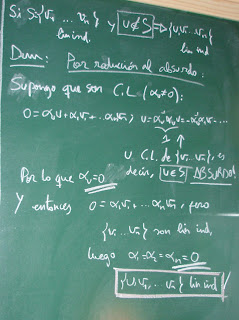 Si S={v₁ ... vₙ} y u∉S ⇒ {u, v₁ ... vₙ}
lin ind. lin ind
Dem: Por reducción al absurdo:
Supongo que son C.L. (α≠0):
0 = αu + α₁v₁ + ... αₙvₙ; u =
1
u C.L. de {v₁...vₙ}, es
decir, u∈S ABSURDO!
Por lo que α=0
Y entonces 0 = α₁v₁ + ... αₙvₙ, pero
{v₁ ... vₙ} son lin ind,
luego α₁=α₂=αₙ=0
{u, v₁, ... vₙ} lin ind